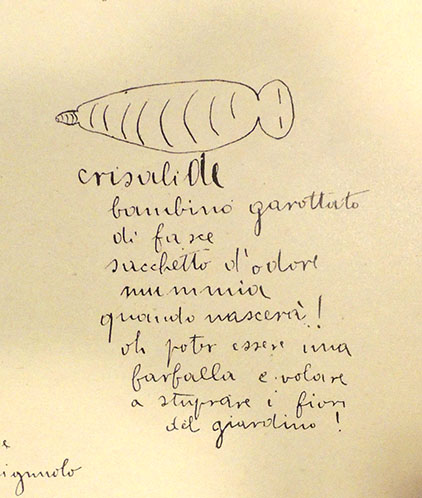 crisalide
bambino garottato
di fasce
sacchetto d'odore
mummia
quando nascerà!
oh poter essere una
farfalla e volare
a stuprare i fiori
del giardino!